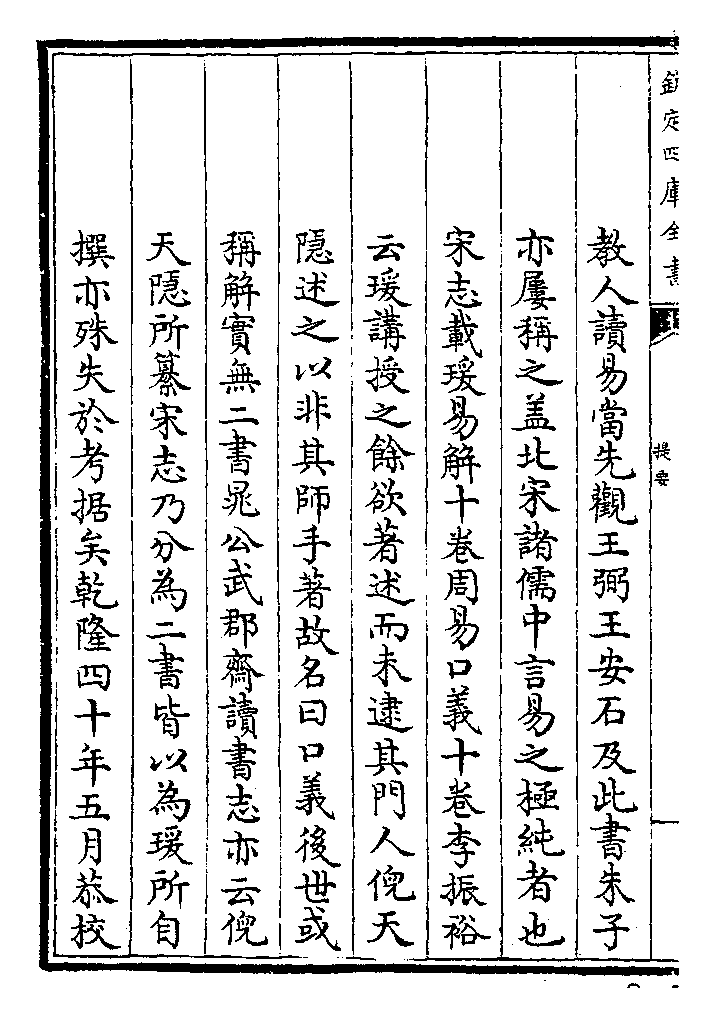 欽定四庫全書
提要
教人讀易當先觀王弼王安石及此書朱子
亦屢稱之盖北宋諸儒中言易之極純者也
宋志載瑗易解十卷周易口義十卷李振裕
云瑗講授之餘欲著述而未逮其門人倪天
隱述之以非其師手著故名曰口義後世或
稱解實無二書晁公武郡齋讀書志亦云倪
天隱所纂宋志乃分為二書皆以為瑗所自
撰亦殊失於考据矣乾隆四十年五月恭校